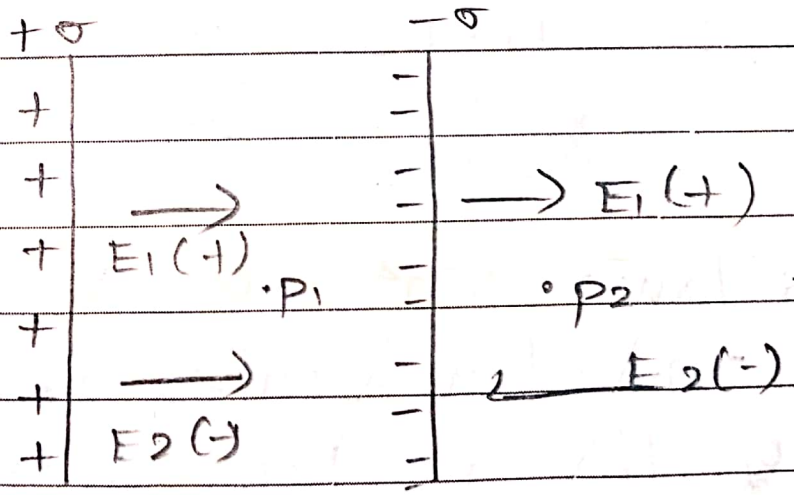 +σ -σ
+ -
+ - -
+ - → E₁ (+)
→ -
+ E₁ (+) -
·P₁ - ·P₂
+
→ - E₂(-)
+ E₂ (-) -
+ -